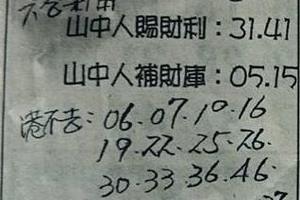 山中人賜財利：31.41
山中人補財庫：05.15
港不去：06.07.10.16
19.22.25.26.
30.33.36.46.